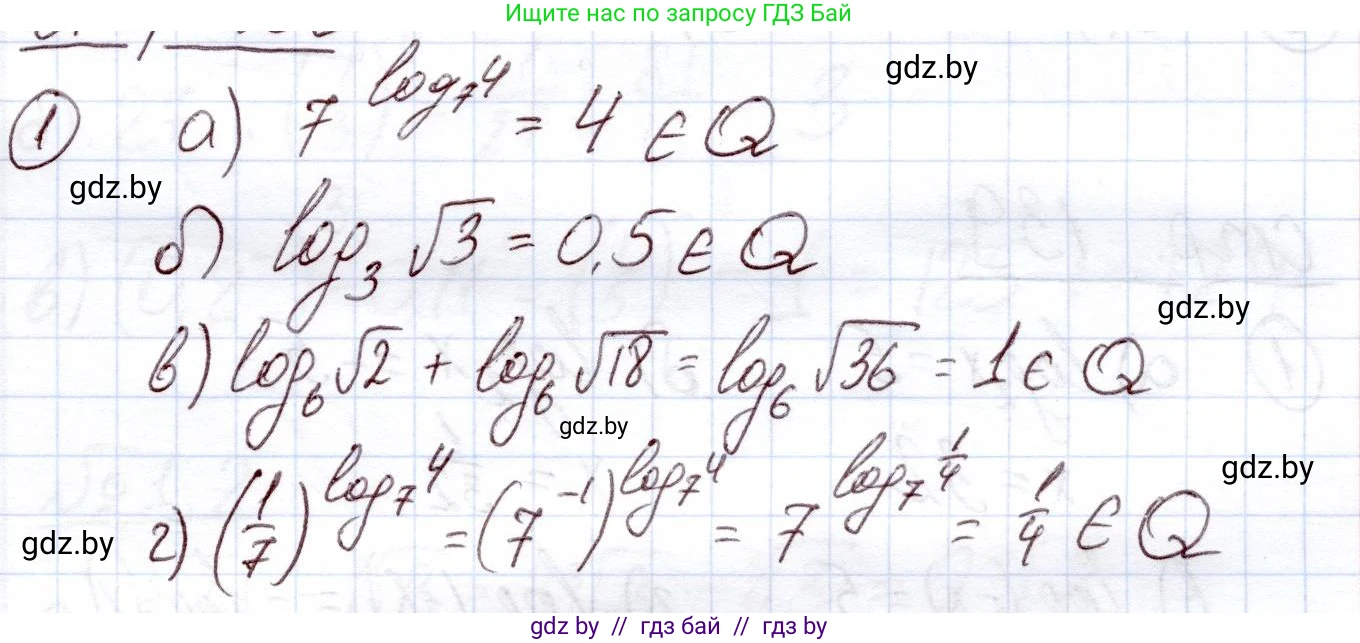 Ищите нас по запросу ГДЗ Бай
① а) 7^{log_7 4} = 4 ∈ Q
gdz.by
gdz.by
б) log_3 √3 = 0,5 ∈ Q
gdz.by
в) log_6 √2 + log_6 √18 = log_6 √36 = 1 ∈ Q
gdz.by
г) (1/7)^{log_7 4} = (7^{-1})^{log_7 4} = 7^{log_7 1/4} = 1/4 ∈ Q
gdz.by
gdz.by
gdz by // гдз бай // гдз by